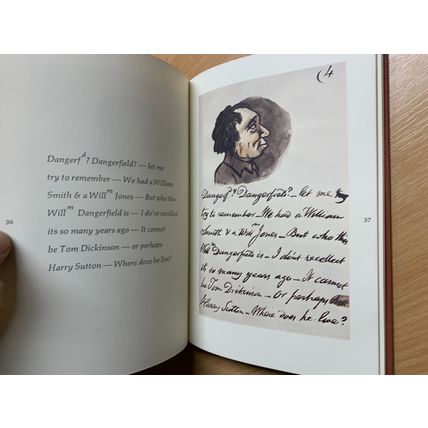 Dangerf^d? Dangerfield? — let me
try to remember — We had a William
Smith & a Will^m Jones — But who this
Will^m Dangerfield is — I do'nt recollect
its so many years ago — It cannot
be Tom Dickinson — or perhaps
Harry Sutton — Where does he live?
36
(4
Dangerf^d? Dangerfield? — let me
try to remember — We had a William
Smith & a Will^m Jones — But who this
Will^m Dangerfield is — I do'nt recollect
its so many years ago — It cannot
be Tom Dickinson — Or perhaps
Harry Sutton — Where does he live?
37